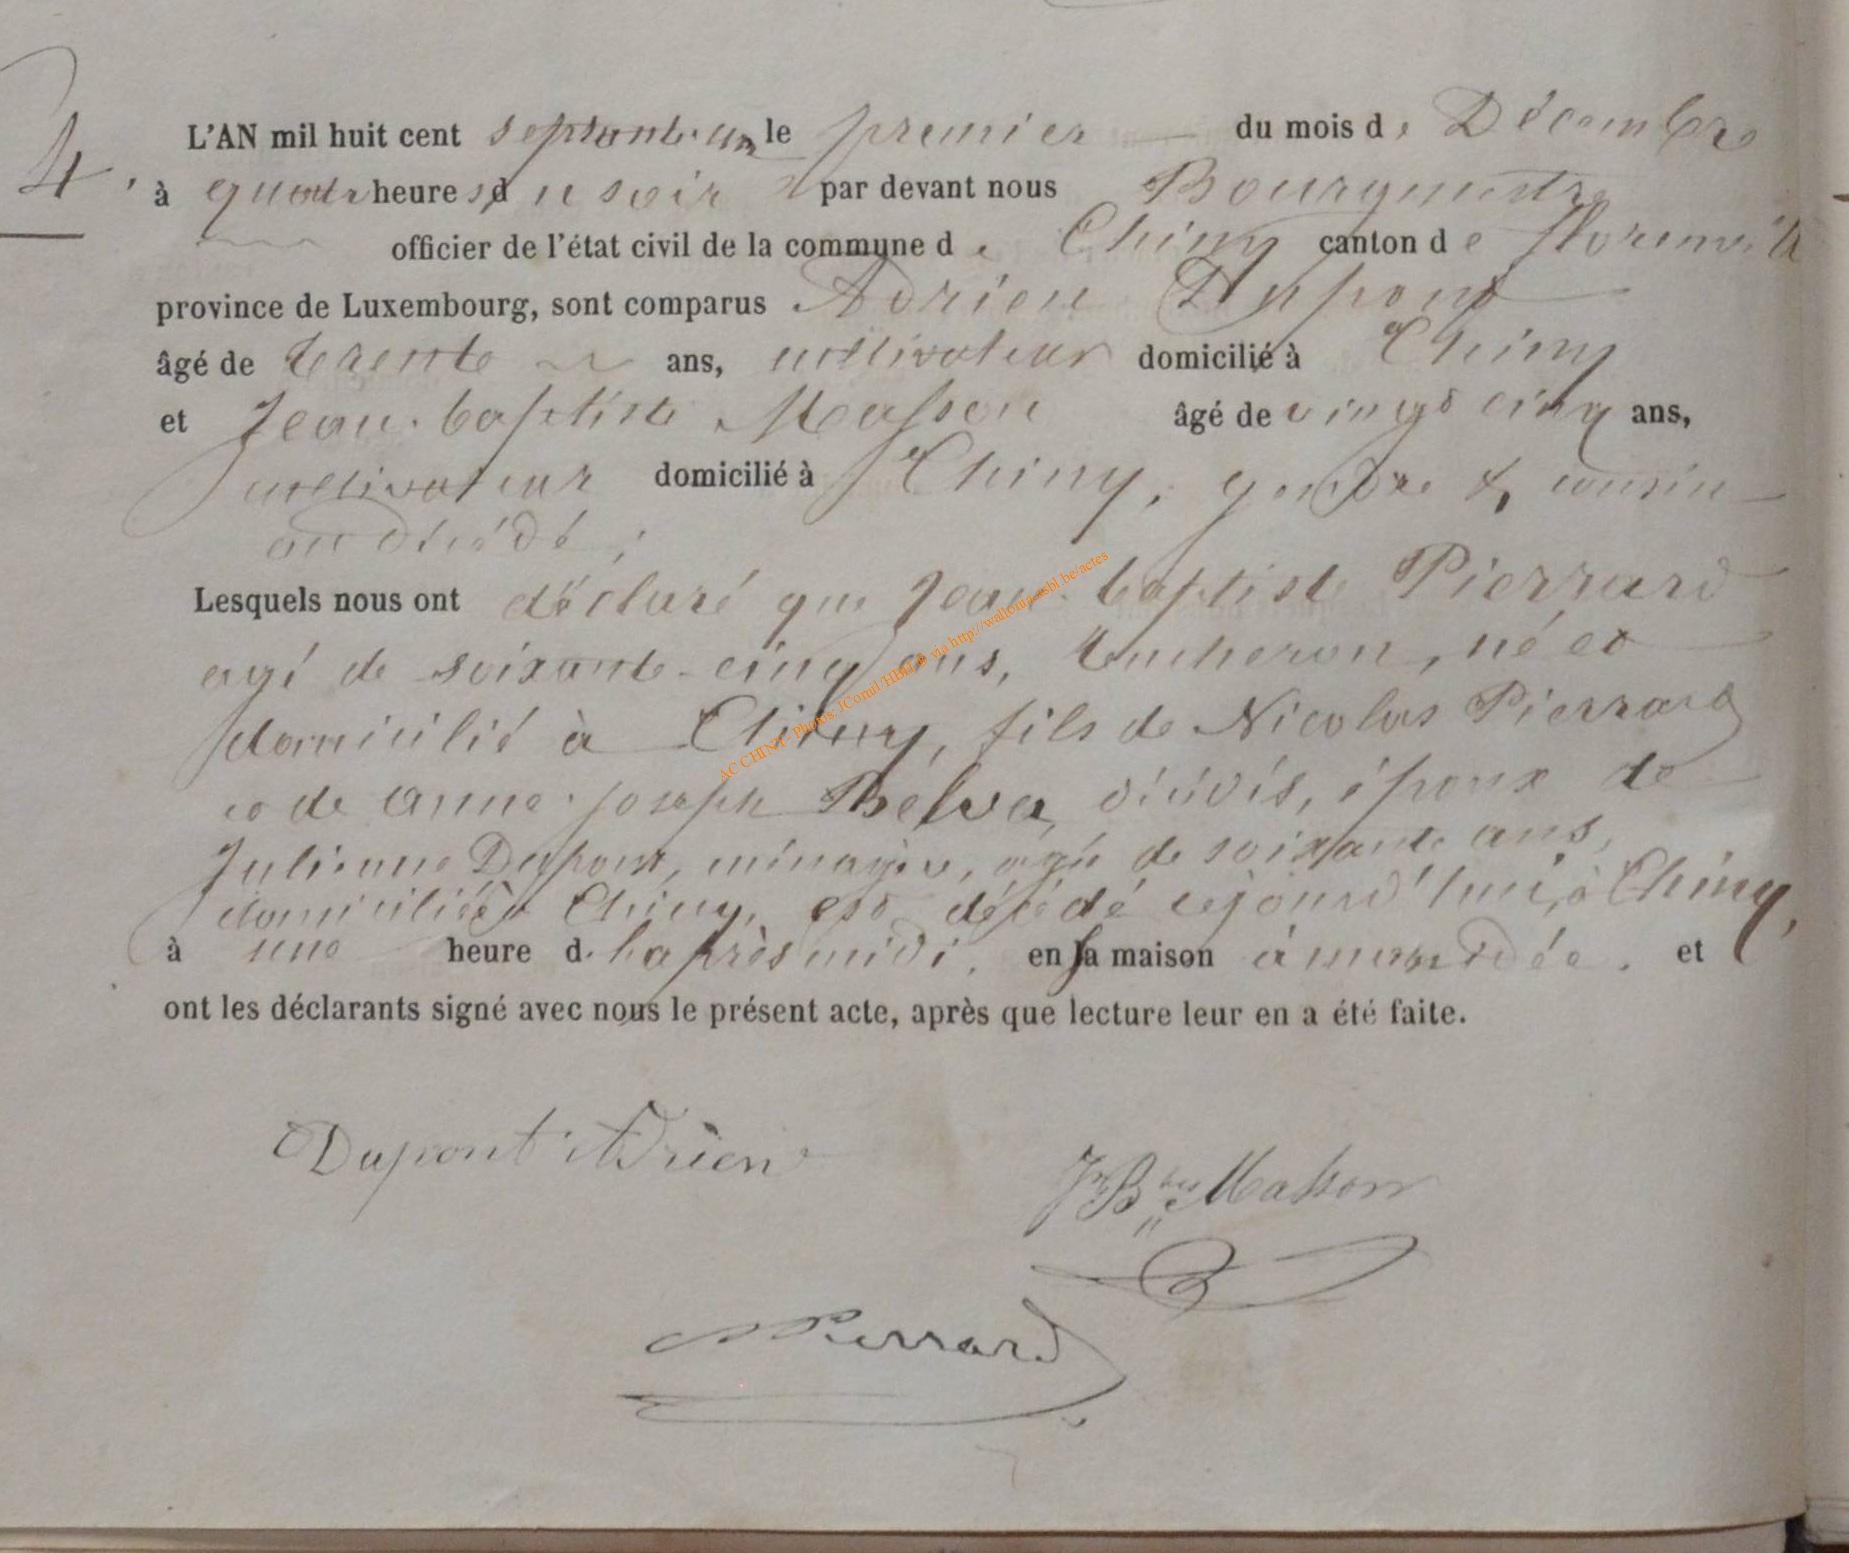 4.
L'AN mil huit cent septante-un le premier du mois de Décembre
à quatre heures du soir par devant nous Bourgmestre
officier de l'état civil de la commune de Chiny canton de florenville
province de Luxembourg, sont comparus Adrien Dupont
âgé de trente ans, cultivateur domicilié à Chiny
et Jean-baptiste Masson âgé de vingt cinq ans,
cultivateur domicilié à Chiny, gendre & cousin
au décédé;
Lesquels nous ont déclaré que Jean-baptiste Pierrard
agé de soixante-cinq ans, bucheron, né et
domicilié à Chiny, fils de Nicolas Pierrard
et de anne-joseph Bélva, décédés, époux de
Julienne Dupont, ménagère, agée de soixante ans,
domiciliée à Chiny, est décédé cejourd'hui, à Chiny,
à une heure de l'après midi, en sa maison et
ont les déclarants signé avec nous le présent acte, après que lecture leur en a été faite.
Dupont Adrien
JnBte Masson
Pierrard
AC CHINY - Photos: JComil/HBH,® via http://wallonia-asbl.be/actes